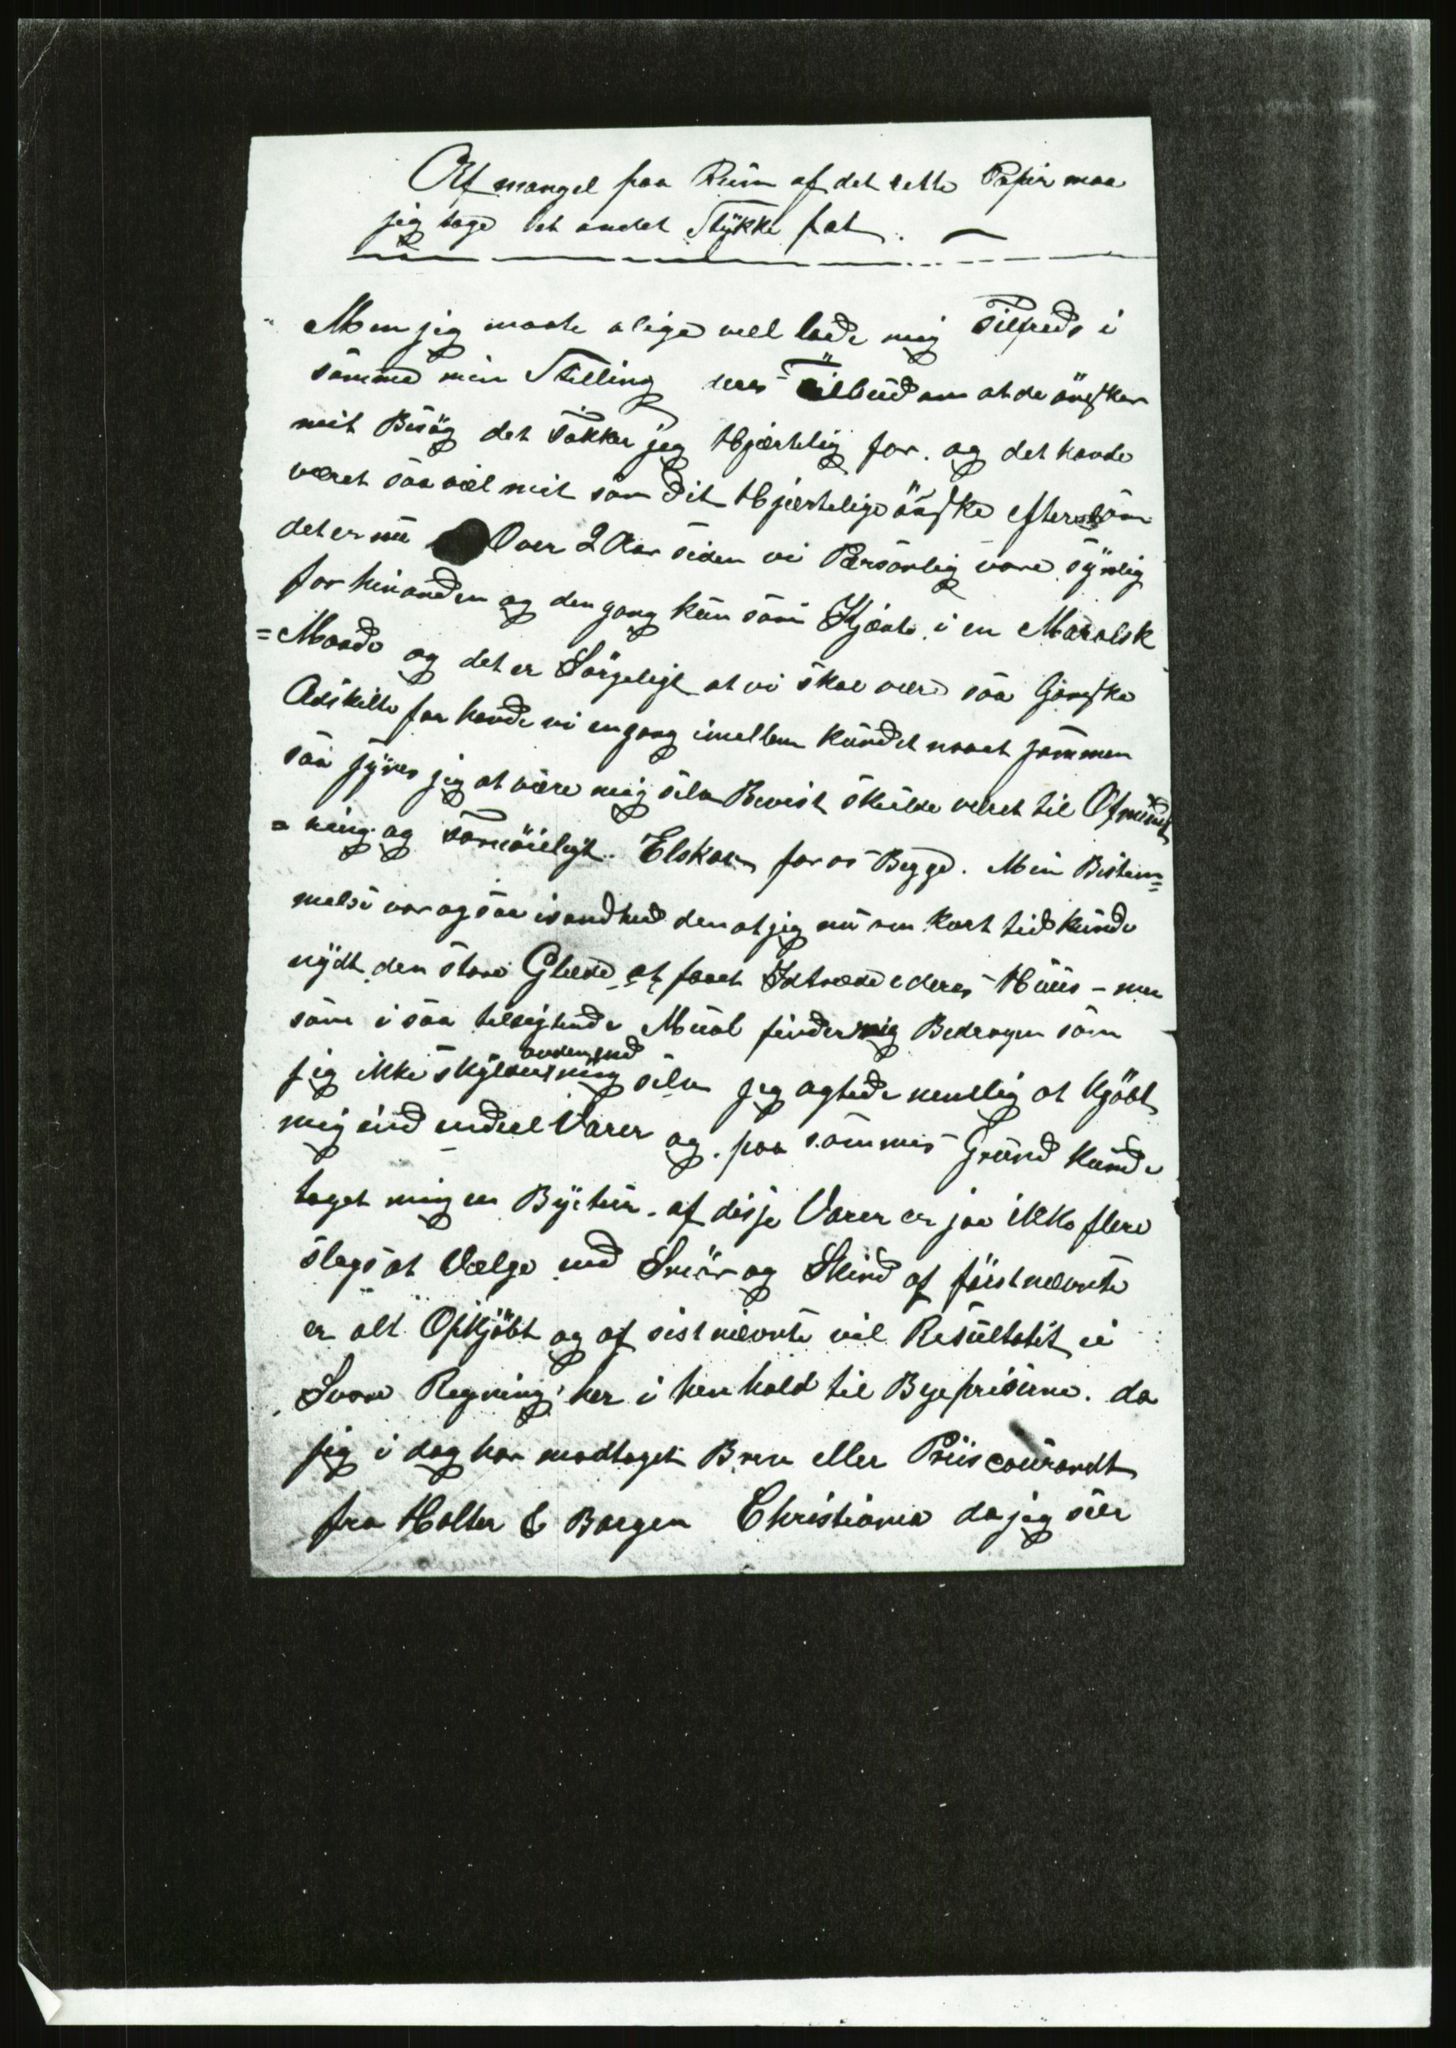 Af mangel paa Rum af det rette Papir maa
jeg tage det andet Stÿkke fat.
Men jeg maate aligevell lade mig Tilfreds i
samme min Stilling deres Tilbud om at de önsker
mit Besög det Takker jeg Hjærtelig for. og det havde
været saa vel mit som Dit Hjertelige önske eftersom
det er nu Over 2 Aar siden vi Personlig vare sÿnlig
for hinanden og den gang kun som Kjænte i en Maralsk
= Maade og det er Sörgeligt at vi skal være saa Ganske
Adskilte for havde vi engang imellem kundet naaet sammen
saa sÿnes jeg at være mig selv Bevist skulde været til Opmund
= ring og Fornöieligt. Elskov for os Begge. Min Bestem=
melse var ogsaa isandhed den at jeg nu om kort tid kunde
nÿdt den store Glæde at faaet Idtræde i deres Huus – men
som i saa tilsigtende Maal finder mig Bedragen som
jeg ikke skÿlder anden end mig selv jeg agtede nemlig at Kjöbt
mig ind endeel Varer og paa samme Grund kunde
taget mig en Bÿetur. af disse Varer er jaa ikke flere
slags at Vælge end Smör og Skind af förstnævnte
er alt Opkjöbt og af sistnævnte vil Resultatet ei
Svare Regning her i henhold til Byepriserne. da
jeg i dag har modtaget Brev eller Priiscourandt
fra Holter & Borgen Christiania da jeg seer